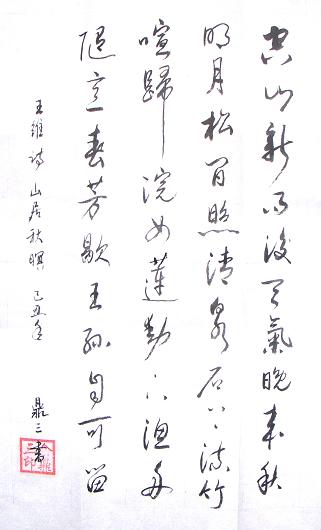 空山新雨後天氣晚來秋
明月松間照清泉石上流竹
喧歸浣女蓮動下漁舟
隨意春芳歇王孫自可留
王維詩 山居秋暝 己丑年 鼎三書